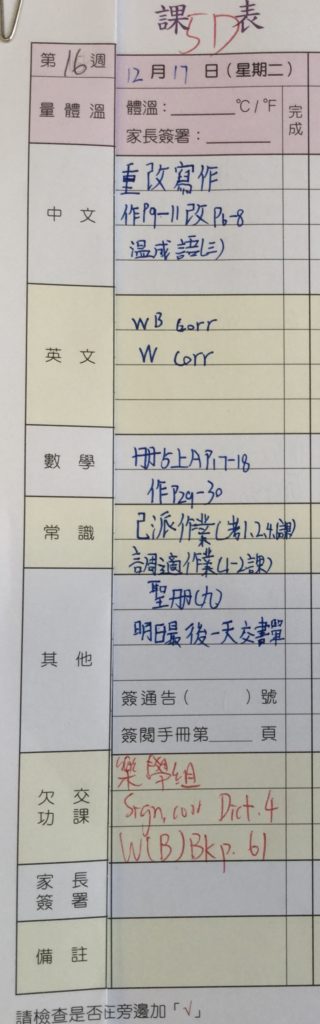 課表
5D
第16週 12月17日(星期二)
量體溫 體溫:______℃/℉ 完成
家長簽署:______
中文 重改寫作
作P9-11改P6-8
温成語(三)
英文 WB Corr
W Corr
數學 冊5上AP.17-18
作P29-30
常識 已派作業(考1、2、4課)
調適作業(1-2課)
其他 聖冊(九)
明日最後一天交書單
簽通告( )號
簽閱手冊第____頁
欠交功課 樂學組
Sign, corr Dict. 4
W(B) Bk p. 61
家長簽署
備註
請檢查是否在旁邊加「√」